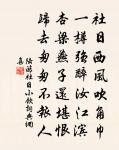 社日西風吹角巾
一樽強醉汶江濱
杏梁燕子還堪恨
歸去匆匆不報人
陸游社日小飲詩詞典網
集